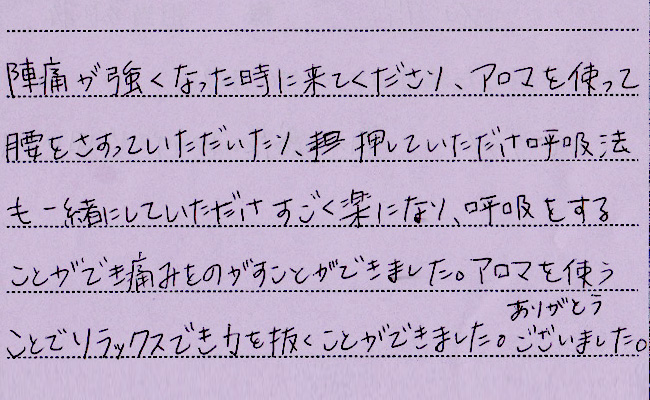 陣痛が強くなった時に来てくださり、アロマを使って
腰をさすっていただいたり、押していただけ呼吸法
も一緒にしていただけすごく楽になり、呼吸をする
ことができ痛みをのがすことができました。アロマを使う
ありがとう
ことでリラックスでき力を抜くことができました。ございました。